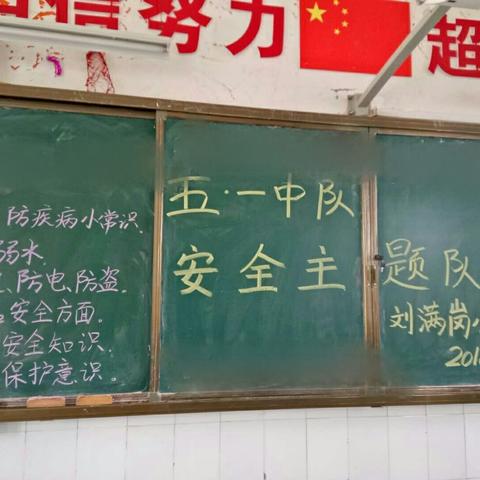 努力
超
防疾病小常识.
溺水.
防电.防盗.
安全方面.
安全知识.
保护意识.
五·一中队
安全主题队
刘满岗小
201